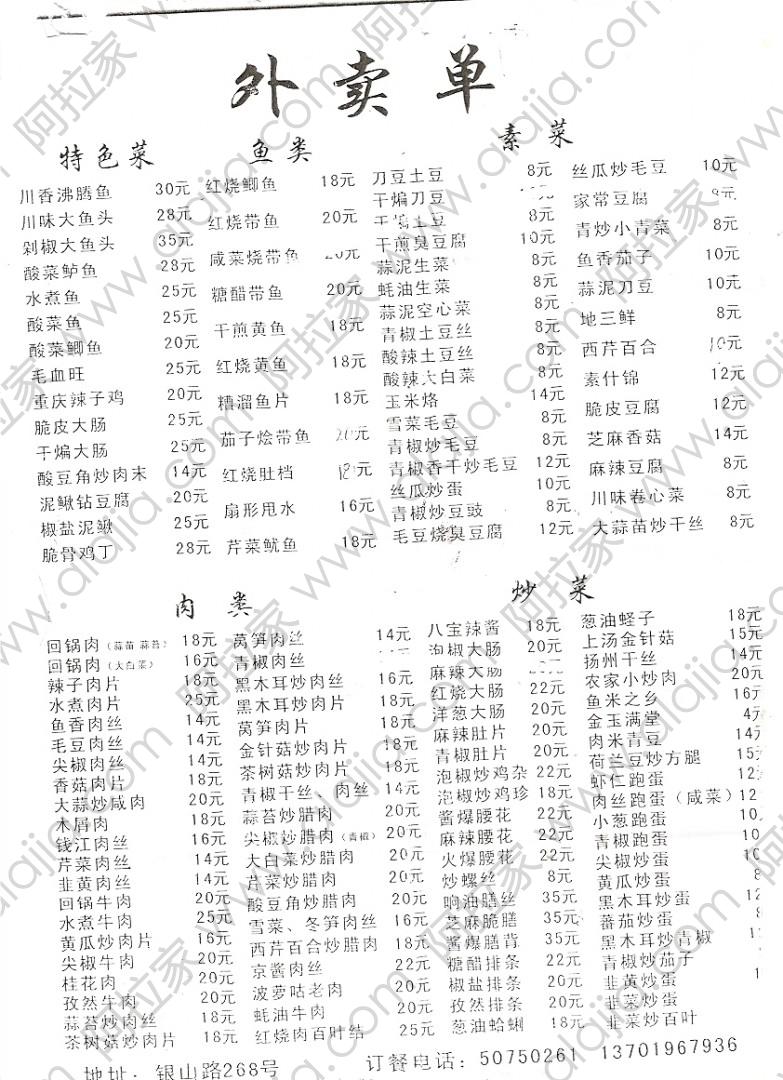 外卖单
特色菜
川香沸腾鱼 30元
川味大鱼头 28元
剁椒大鱼头 35元
酸菜鲈鱼 28元
水煮鱼 25元
酸菜鱼 25元
酸菜鲫鱼 20元
毛血旺 25元
重庆辣子鸡 20元
脆皮大肠 25元
干煸大肠 25元
酸豆角炒肉末 14元
泥鳅钻豆腐 20元
椒盐泥鳅 25元
脆骨鸡丁 28元
鱼类
红烧鲫鱼 18元
红烧带鱼 20元
咸菜烧带鱼
糖醋带鱼 20元
干煎黄鱼 18元
红烧黄鱼 18元
糟溜鱼片 18元
茄子烩带鱼 20元
红烧肚档
扇形甩水 16元
芹菜鱿鱼 18元
素菜
刀豆土豆 8元
干煸刀豆 8元
干煸土豆 8元
干煎臭豆腐 10元
蒜泥生菜 8元
蚝油生菜 8元
蒜泥空心菜 8元
青椒土豆丝 8元
酸辣土豆丝 8元
酸辣大白菜 8元
玉米烙 14元
雪菜毛豆 8元
青椒炒毛豆 8元
青椒香干炒毛豆 12元
丝瓜炒蛋 10元
青椒炒豆豉 8元
毛豆烧臭豆腐 12元
丝瓜炒毛豆 10元
家常豆腐
青炒小青菜 8元
鱼香茄子 10元
蒜泥刀豆 10元
地三鲜 8元
西芹百合 10元
素什锦 12元
脆皮豆腐 12元
芝麻香菇 14元
麻辣豆腐 8元
川味卷心菜 8元
大蒜苗炒干丝 8元
肉类
回锅肉（蒜苗 蒜苔） 18元
回锅肉（大白菜） 16元
辣子肉片 18元
水煮肉片 25元
鱼香肉丝 14元
毛豆肉丝 14元
尖椒肉丝 14元
香菇肉片 18元
大蒜炒咸肉 20元
木屑肉 18元
钱江肉丝 16元
芹菜肉丝 14元
韭黄肉丝 14元
回锅牛肉 20元
水煮牛肉 25元
黄瓜炒肉片 16元
尖椒牛肉 20元
桂花肉 20元
孜然牛肉 20元
蒜苔炒肉丝 14元
茶树菇炒肉片 18元
莴笋肉丝 14元
青椒肉丝 14元
黑木耳炒肉丝 16元
黑木耳炒肉片 18元
莴笋肉片 18元
金针菇炒肉片 18元
茶树菇炒肉片 18元
青椒干丝、肉丝 14元
蒜苔炒腊肉 20元
尖椒炒腊肉（青椒） 20元
大白菜炒腊肉 20元
芹菜炒腊肉 20元
酸豆角炒腊肉 20元
雪菜、冬笋肉丝 16元
西芹百合炒腊肉 18元
京酱肉丝 22元
菠萝咕老肉 20元
蚝油牛肉 20元
红烧肉百叶结 25元
炒菜
八宝辣酱 18元
泡椒大肠 20元
麻辣大肠 20元
红烧大肠 22元
洋葱大肠 20元
麻辣肚片 20元
青椒肚片 20元
泡椒炒鸡杂 22元
泡椒炒鸡珍 18元
酱爆腰花 22元
麻辣腰花 22元
火爆腰花 22元
炒螺丝 8元
响油膳丝 35元
芝麻脆膳 35元
酱爆膳背 35元
糖醋排条 22元
椒盐排条 20元
孜然排条 20元
葱油蛤蜊 18元
葱油蛏子 18元
上汤金针菇 15元
扬州干丝 14元
农家小炒肉 20元
鱼米之乡 16元
金玉满堂
肉米青豆 14元
荷兰豆炒方腿 15元
虾仁跑蛋 12
肉丝跑蛋（咸菜） 12
小葱跑蛋 10
青椒跑蛋 10
尖椒炒蛋 10
黄瓜炒蛋 8
黑木耳炒蛋 12
蕃茄炒蛋 8
黑木耳炒青椒
青椒炒茄子
韭黄炒蛋
韭菜炒蛋
韭菜炒百叶
地址：银山路268号 订餐电话：50750261 13701967936
阿拉家 www.alajia.com